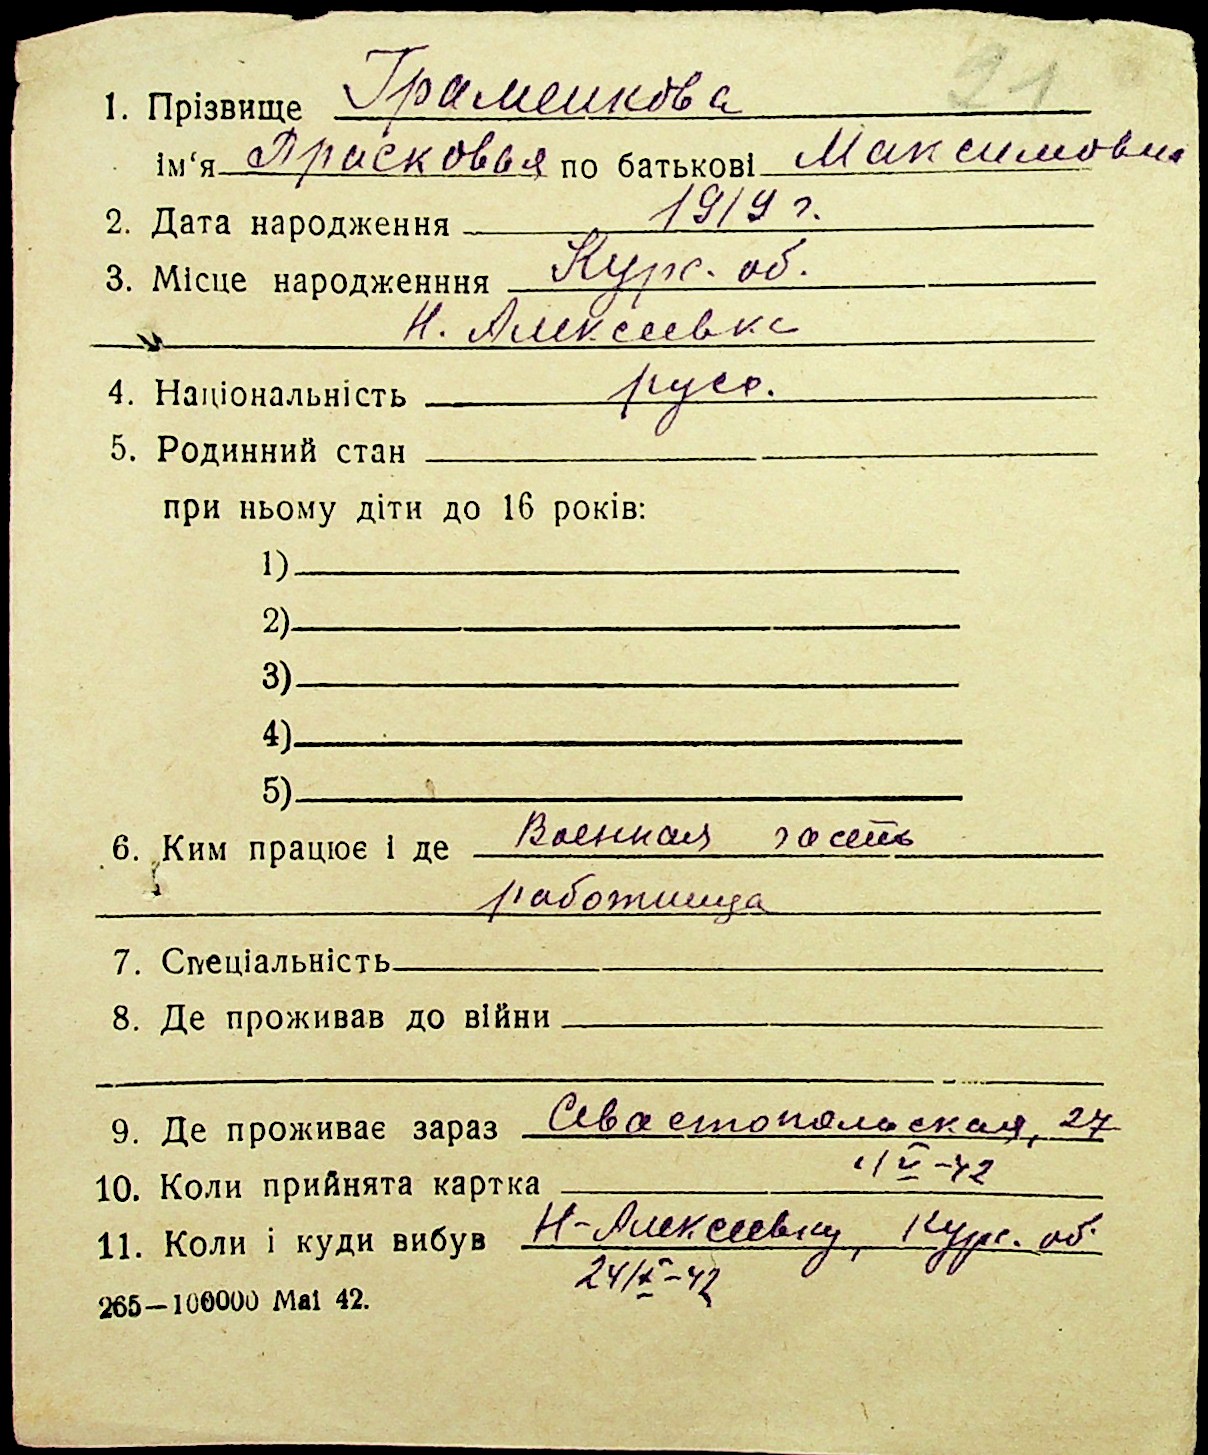 21
1. Прізвище Граменкова
ім'я Прасковья по батькові Максимовна
2. Дата народження 1919 г.
3. Місце народженння Курс. об.
Н. Алексеевка
4. Національність русс.
5. Родинний стан
при ньому діти до 16 років:
1)
2)
3)
4)
5)
6. Ким працює і де Военная часть
работница
7. Спеціальність
8. Де проживав до війни
9. Де проживає зараз Севастопольская, 27
10. Коли прийнята картка V-42
11. Коли і куди вибув Н-Алексеевку, Курс. об.
24/X-42
265—100000 Маі 42.